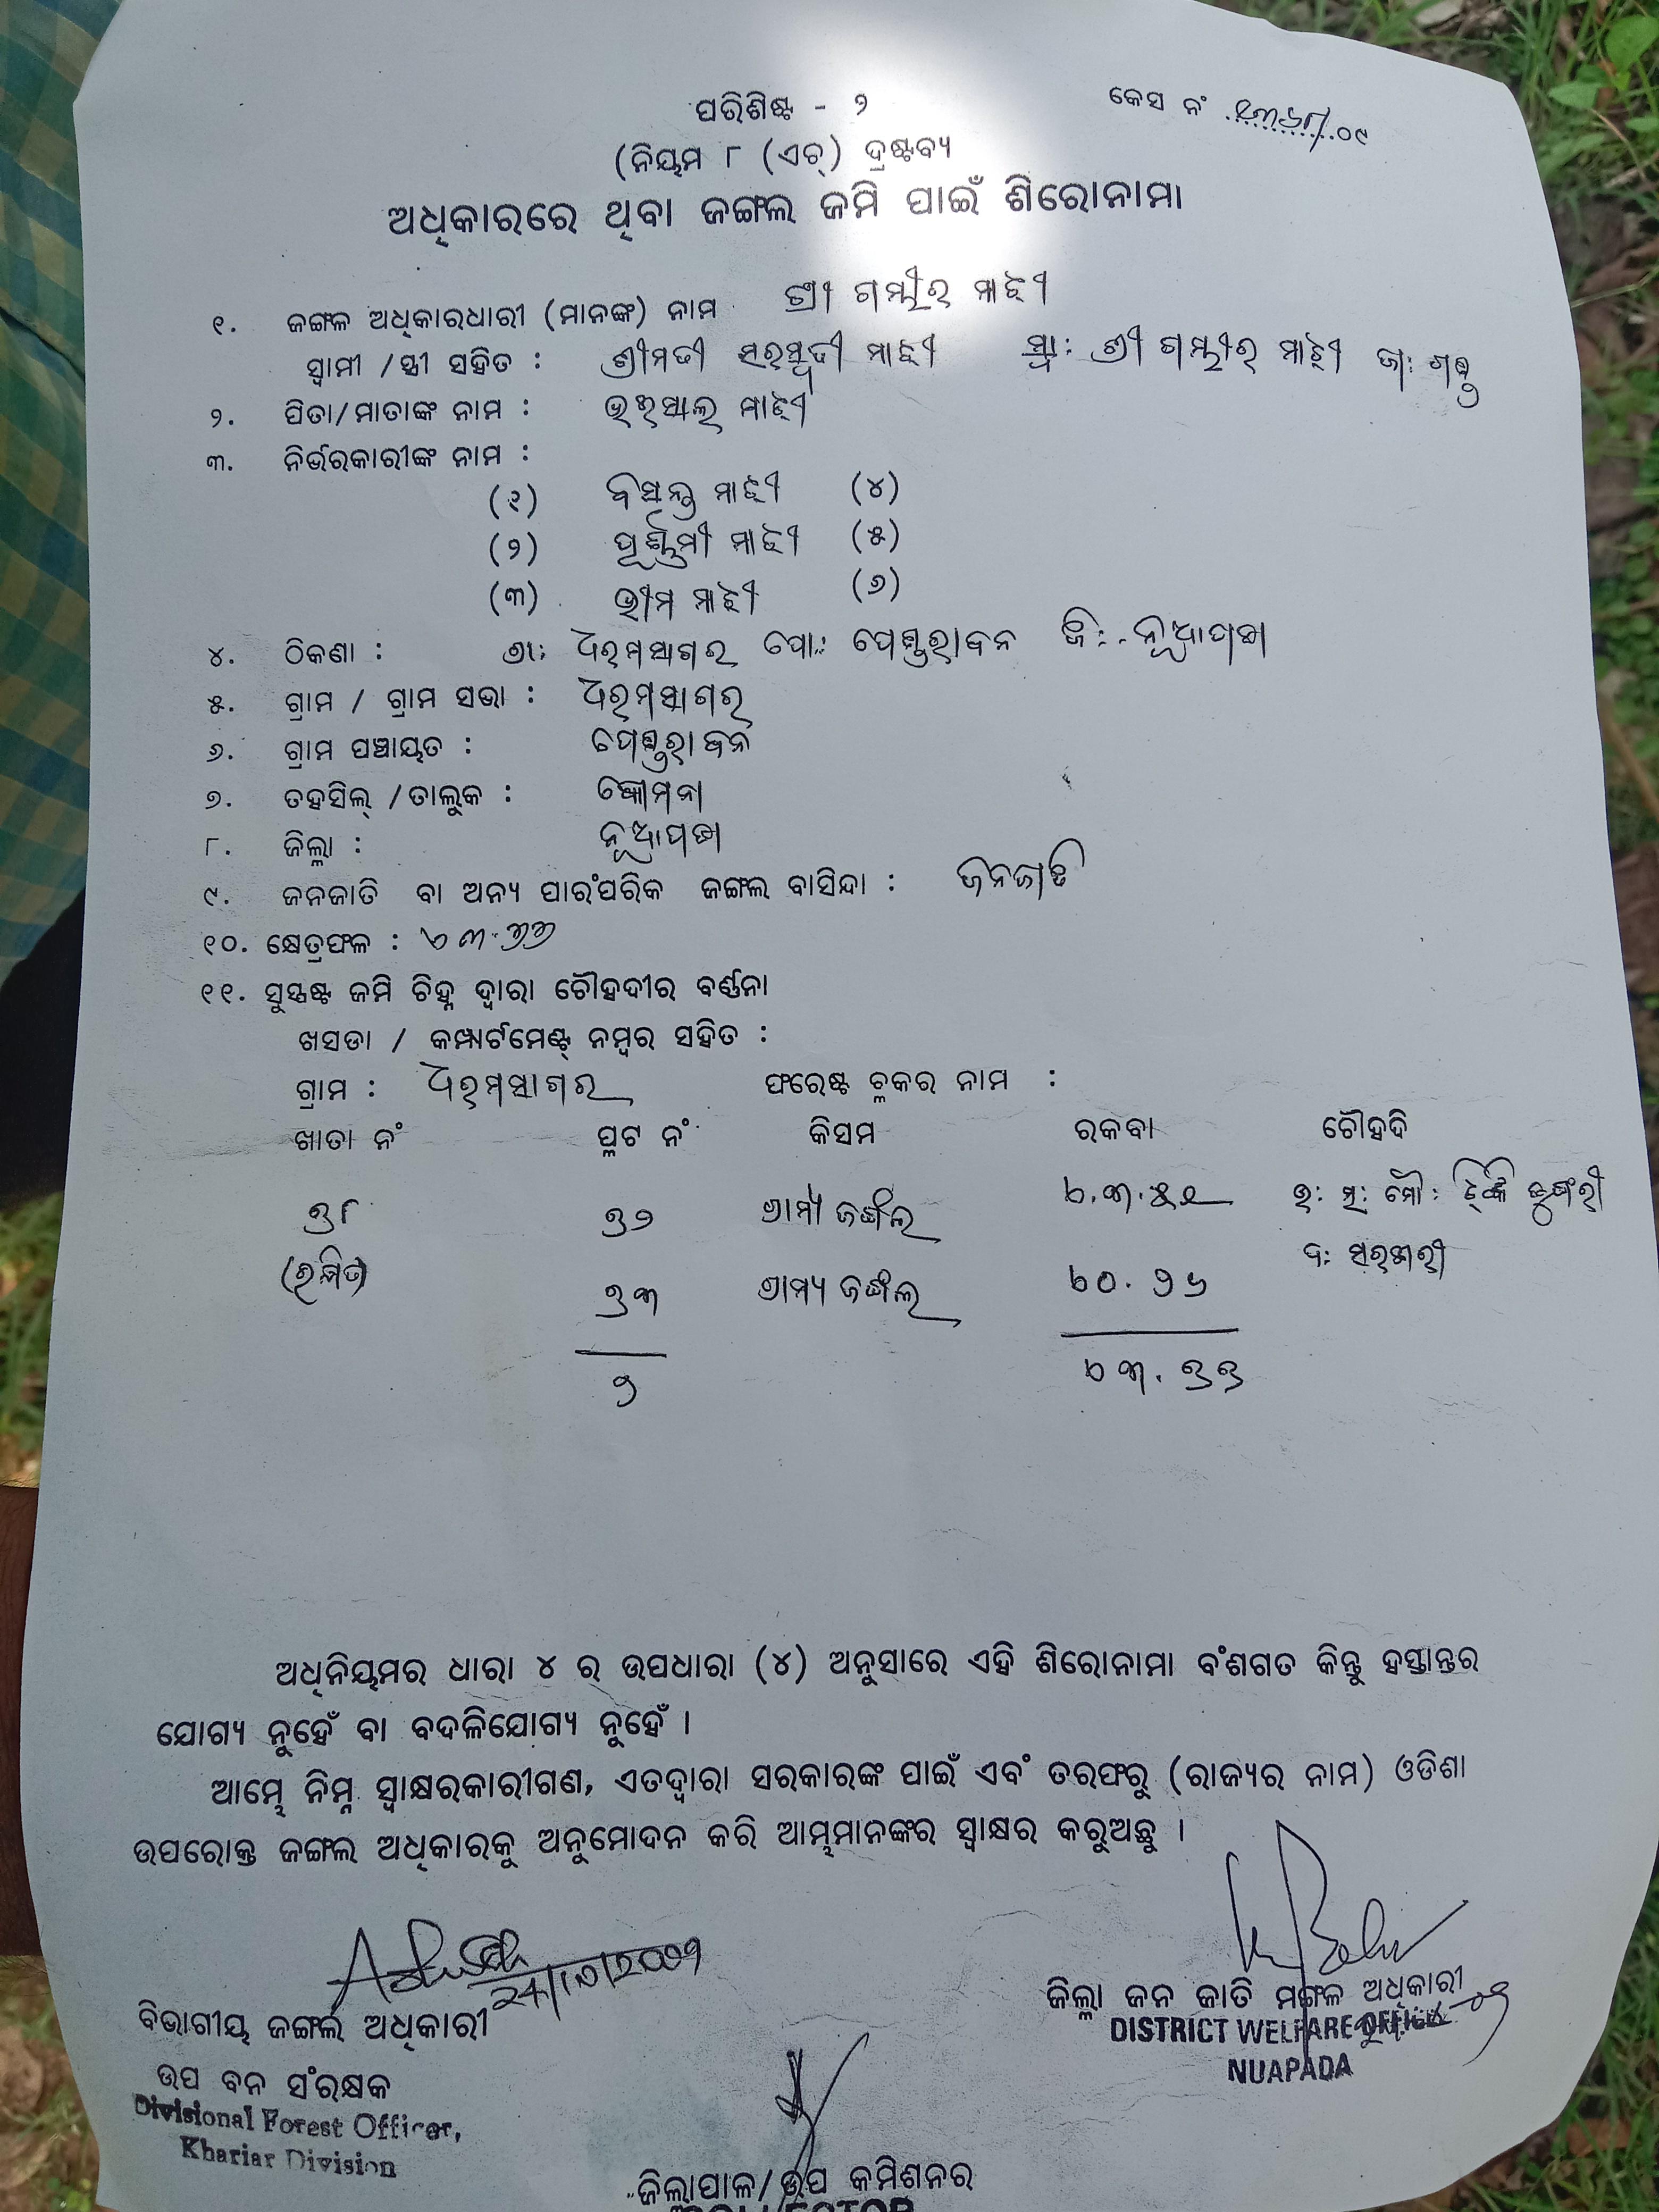 ପରିଶିଷ୍ଟ - ୨
କେସ ନଂ ..........୦୯
(ନିୟମ ୮ (ଏଚ୍) ଦ୍ରଷ୍ଟବ୍ୟ
ଅଧିକାରରେ ଥିବା ଜଙ୍ଗଲ ଜମି ପାଇଁ ଶିରୋନାମା
୧. ଜଙ୍ଗଳ ଅଧିକାରଧାରୀ (ମାନଙ୍କ) ନାମ ଶ୍ରୀ ଗମ୍ଭୀର ମାଝୀ
ସ୍ୱାମୀ / ସ୍ତ୍ରୀ ସହିତ : ଶ୍ରୀମତୀ ସରସ୍ୱତୀ ମାଝୀ ସ୍ୱା: ଶ୍ରୀ ଗମ୍ଭୀର ମାଝୀ ଜା: ଗଣ୍ଡ
୨. ପିତା/ମାତାଙ୍କ ନାମ : ମାଝୀ
୩. ନିର୍ଭରକାରୀଙ୍କ ନାମ :
(୧) ବସନ୍ତ ମାଝୀ (୪)
(୨) ପୂର୍ଣ୍ଣମୀ ମାଝୀ (୫)
(୩) ଭୀମ ମାଝୀ (୬)
୪. ଠିକଣା : ଗ୍ରା: ଧରମସାଗର ପୋ: ପେଣ୍ଡରାବନ ଜି: ନୂଆପଡା
୫. ଗ୍ରାମ / ଗ୍ରାମ ସଭା : ଧରମସାଗର
୬. ଗ୍ରାମ ପଞ୍ଚାୟତ : ପେଣ୍ଡରାବନ
୭. ତହସିଲ୍ /ତାଲୁକ : କୋମନା
୮. ଜିଲ୍ଲା : ନୂଆପଡା
୯. ଜନଜାତି ବା ଅନ୍ୟ ପାରଂପରିକ ଜଙ୍ଗଲ ବାସିନ୍ଦା : ଜନଜାତି
୧୦. କ୍ଷେତ୍ରଫଳ : ୪୩.୭୭
୧୧. ସୁସ୍ପଷ୍ଟ ଜମି ଚିହ୍ନ ଦ୍ୱାରା ଚୌହଦୀର ବର୍ଣ୍ଣନା
ଖସଡା / କମ୍ପାର୍ଟମେଣ୍ଟ୍ ନମ୍ବର ସହିତ :
ଗ୍ରାମ : ଧରମସାଗର ଫରେଷ୍ଟ ବ୍ଲକର ନାମ :
ଖାତା ନଂ ପ୍ଲଟ ନଂ କିସମ ରକବା ଚୌହଦି
୭୮ ୭୨ ଗ୍ରାମ୍ୟ ଜଙ୍ଗଲ ଡୁଙ୍ଗରୀ
(ରକ୍ଷିତ) ଦ: ସରକାରୀ
୭୩ ଗ୍ରାମ୍ୟ ଜଙ୍ଗଲ
୨
ଅଧିନିୟମର ଧାରା ୪ ର ଉପଧାରା (୪) ଅନୁସାରେ ଏହି ଶିରୋନାମା ବଂଶଗତ କିନ୍ତୁ ହସ୍ତାନ୍ତର
ଯୋଗ୍ୟ ନୁହେଁ ବା ବଦଳିଯୋଗ୍ୟ ନୁହେଁ ।
ଆମ୍ଭେ ନିମ୍ନ ସ୍ୱାକ୍ଷରକାରୀଗଣ, ଏତଦ୍ୱାରା ସରକାରଙ୍କ ପାଇଁ ଏବଂ ତରଫରୁ (ରାଜ୍ୟର ନାମ) ଓଡିଶା
ଉପରୋକ୍ତ ଜଙ୍ଗଲ ଅଧିକାରକୁ ଅନୁମୋଦନ କରି ଆମ୍ଭମାନଙ୍କର ସ୍ୱାକ୍ଷର କରୁଅଛୁ ।
24/10/2009
ବିଭାଗୀୟ ଜଙ୍ଗଲ ଅଧିକାରୀ
ଉପ ବନ ସଂରକ୍ଷକ
Divisional Forest Officer,
Khariar Division
ଜିଲ୍ଲା ଜନ ଜାତି ମଙ୍ଗଳ ଅଧିକାରୀ
DISTRICT WELFARE OFFICER
NUAPADA
ଜିଲ୍ଲାପାଳ/ଉପ କମିଶନର
COLLECTOR